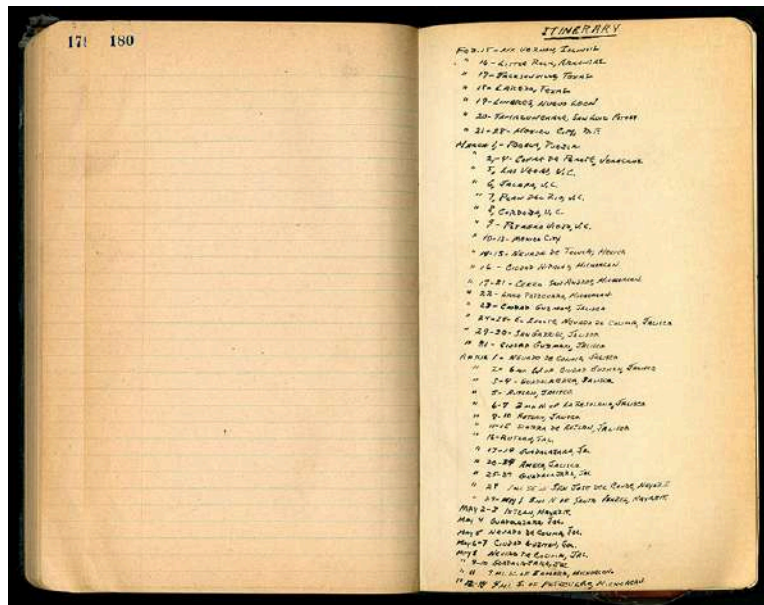 179 180
ITINERARY
Feb. 15 - Mt. Vernon, Illinois
" 16 - Little Rock, Arkansas
" 17 - Jacksonville, Texas
" 18 - Laredo, Texas
" 19 - Linares, Nuevo Leon
" 20 - Tamazunchale, San Luis Potosi
" 21-28 - Mexico City, D.F.
March 1 - Puebla, Puebla
" 2-4 - Cofre de Perote, Veracruz
" 5, Las Vegas, V.C.
" 6, Jalapa, V.C.
" 7, Plan del Rio, V.C.
" 8, Cordoba, V.C.
" 9 - Potrero Viejo, V.C.
" 10-13 - Mexico City
" 14-15 - Nevado de Toluca, Mexico
" 16 - Ciudad Hidalgo, Michoacan
" 17-21 - Cerro San Andres, Michoacan
" 22 - Patzcuaro, Michoacan
" 23 - Ciudad Guzman, Jalisco
" 24-28 - El Isote, Nevado de Colima, Jalisco
" 29-30 - San Gabriel, Jalisco
" 31 - Ciudad Guzman, Jalisco
April 1 - Nevado de Colima, Jalisco
" 2 - 6 mi. W of Ciudad Guzman, Jalisco
" 3-4 - Guadalajara, Jalisco
" 5 - Autlan, Jalisco
" 6-7 2 mi. N of La Resolana, Jalisco
" 8-10 Autlan, Jalisco
" 11-15 Sierra de Autlan, Jalisco
" 16 - Autlan, Jal.
" 17-19 Guadalajara, Jal.
" 20-24 Ameca, Jalisco
" 25-27 Guadalajara, Jal.
" 28 1 mi. SE San Jose del Conde, Nayarit
" 29-May 1 8 mi. N of Santa Nayarit
May 2-3 Ixtlan, Nayarit
May 4 Guadalajara, Jal.
May 5 Nevado de Colima, Jal.
May 6-7 Ciudad Guzman, Jal.
May 8 Nevado de Colima, Jal.
" 9-10 Guadalajara, Jal.
" 11 7 mi. of Zamora, Michoacan.
" 12-14 9 mi. S. of Patzcuaro, Michoacan